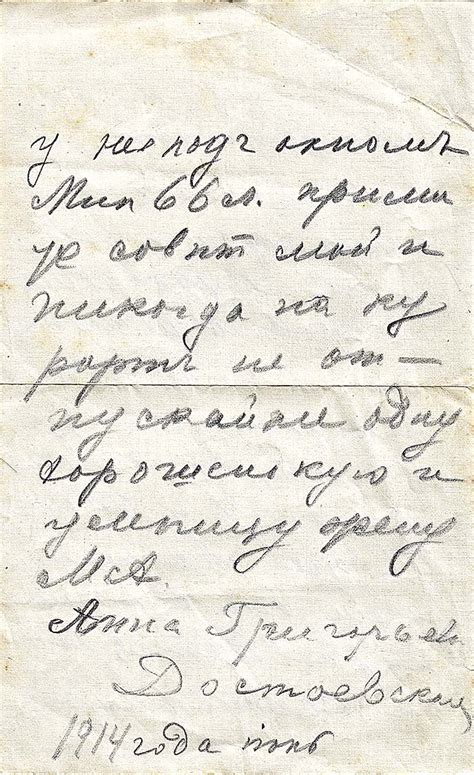 у нея подъ окномъ
Мнѣ 66 л. прими
те совѣт мой и
никогда на ку
рортъ не от-
пускайте одну
хорошенькую и
умницу жену
МА.
Анна Григорьев
Достоевская
1914 года